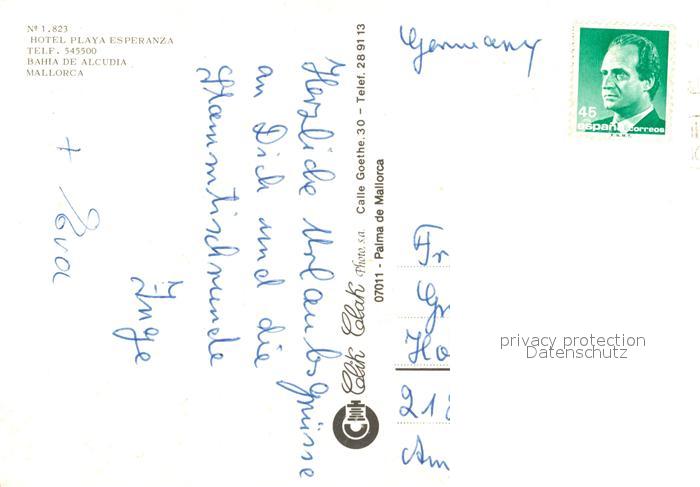 Nº 1.823
HOTEL PLAYA ESPERANZA
TELF. 545500
BAHIA DE ALCUDIA
MALLORCA
Herzliche Urlaubsgrüsse
an Dich und die
Stammtischrunde
Inge
+ Eva
Clik Clak Photo, s.a. Calle Goethe, 30 - Telef. 28 91 13
07011 - Palma de Mallorca
Germany
45
españa correos
F.N.M.T.
Fr
Gr
Ho
21
Am
privacy protection
Datenschutz